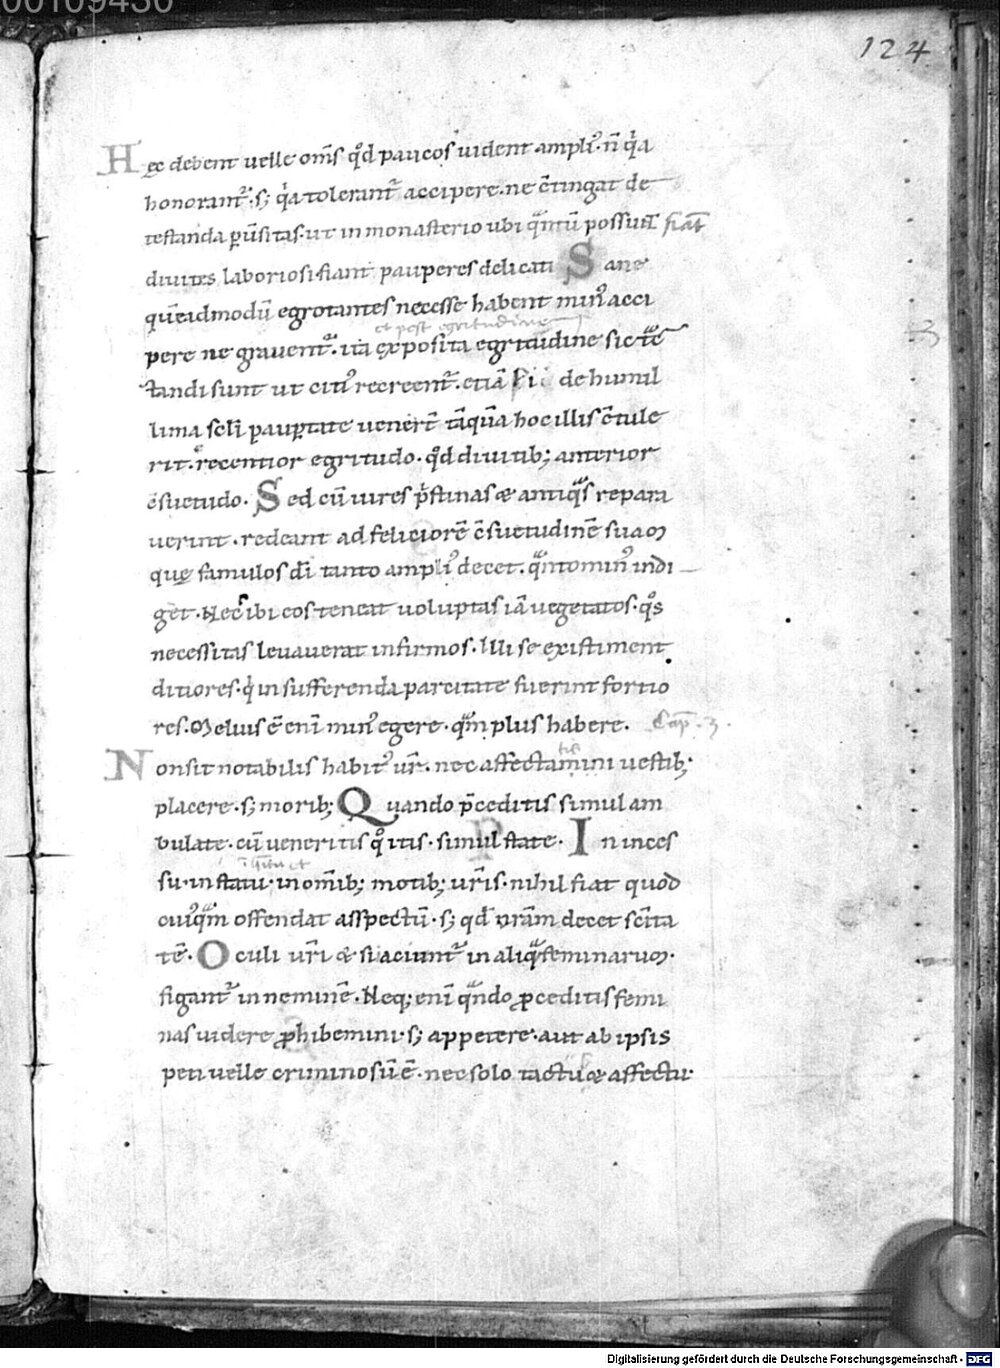 00109430
124
Hęc debent uelle om̄s qd̊ paucos uident ampli᷒. n̄ qͥa
honorant᷑. s; qͥa tolerant᷑ accipere. ne c̄tingat de
testanda ꝑu̅sitas. ut in monasterio ubi qͣntū possunt fiat̄
diuites laboriosi fiant pauperes delicati Sane
quēadmodū egrotantes necesse habent min᷒ acci
et post egritudinē
pere ne grauent᷑. ita exposita egritudine sic t̄c
tandi sunt ut citi᷒ recreent᷑. etiā si de humil
lima sc̄li pauꝑtate uener̄t tāquā hoc illis c̄tule
rit. recentior egritudo. qd̊ diuitib; anterior
c̄suetudo. Sed cū uires pͥstinas & antiqͣs repara
uerint. redeant ad feliciorē c̄suetudinē suam
quę famulos dī tanto ampli᷒ decet. qͣnto min᷒ indi
get. Nec ibi eos teneat uoluptas iā uegetatos. qͦs
necessitas leuauerat infirmos. Illi se existiment
ditiores. qͥ in sufferenda parcitate fuerint fortio
res. Melius ē enī min᷒ egere. qͣm plus habere. Cap̄. 3.
Non sit notabilis habit᷒ ur̄. nec affectamini uestib;
tis
placere. s; morib; Quando p̄ceditis simul am
bulate. cū ueneritis qͦ itis. simul state. In inces
su. in statu. in om̄ib; motib; ur̄is. nihil fiat quod
cui᷒qͣm offendat asspectū. s; qd̄ ur̄am decet sc̄ita
tē. Oculi ur̄i & si iaciunt᷑ in aliqͣ feminarum.
figant᷑ in neminē. Neq; enī qͣndo ꝓceditis femi
nas uidere ꝓhibemini. s; appetere. aut ab ipsis
peti uelle criminosū ē. nec solo tactu & affectu
Digitalisierung gefördert durch die Deutsche Forschungsgemeinschaft - DFG